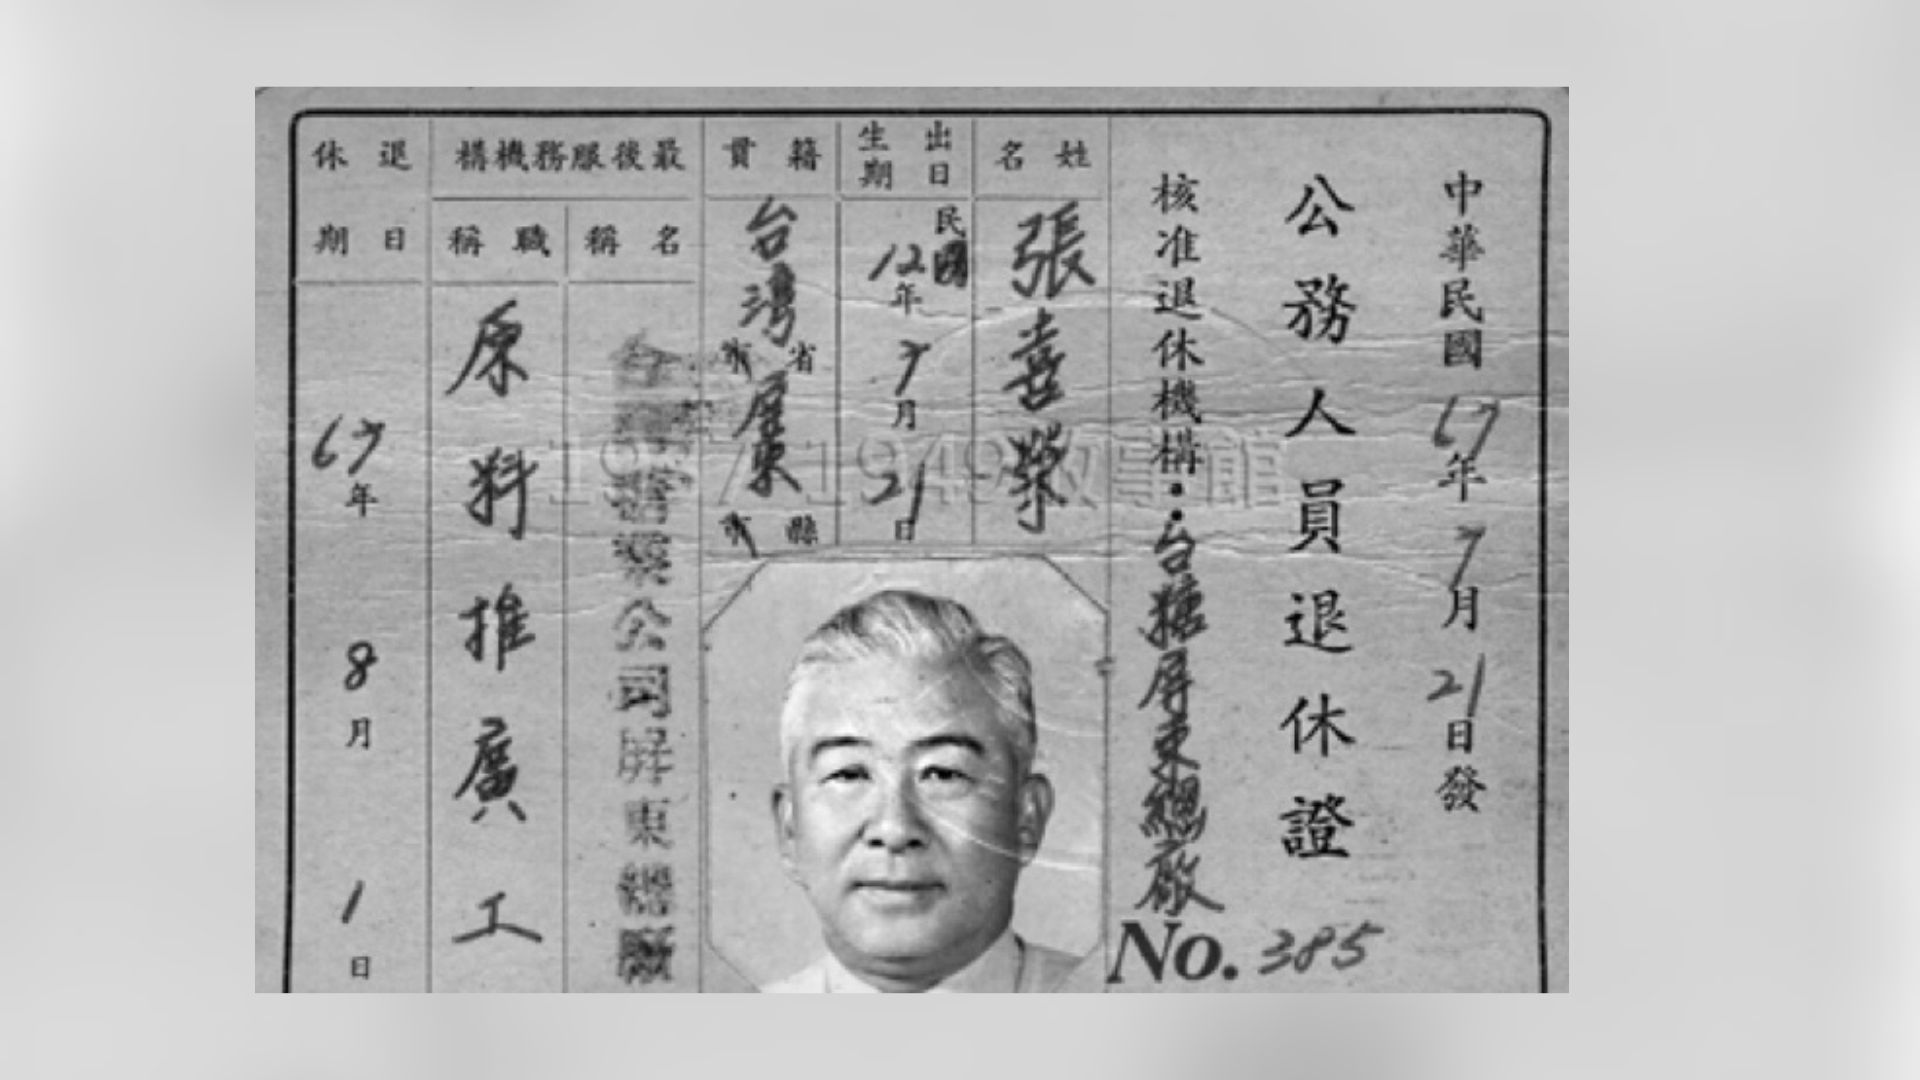 中華民國67年7月21日發
公務人員退休證
核准退休機構：台糖屏東總廠
No. 385
姓名
張喜榮
出生日期
民國12年7月21日
籍貫
台灣省市屏東縣市
最後服務機構
名稱
台灣糖業公司屏東總廠
職稱
原料推廣工
退休日期
67年8月1日